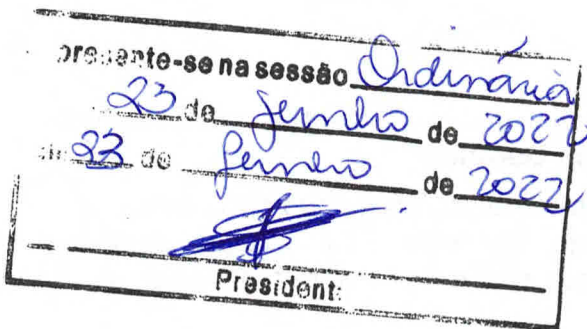 presente-se na sessão Ordinária
23 de junho de 2022
23 de junho de 2022
President